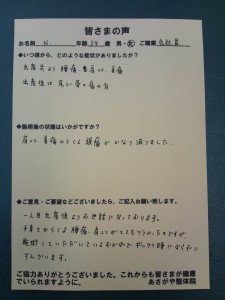 皆さまの声
お名前 N. 年齢 34 歳 男・女 ご職業 会社員
◆いつ頃から、どのような症状がありましたか?
出産前より 腰痛、肩こり、首痛
出産後は 尾てい骨の痛み有
◆施術後の状態はいかがですか?
肩こり、首痛からくる 頭痛が かなり減りました。
◆ご意見・ご要望などございましたら、ご記入お願い致します。
一人目出産後よりお世話になっております。
子育てからくる 腰痛、肩こりがとてもつらかったですが、
施術していただいているおかげで ギックリ腰にならずに
すんでいます。
ご協力ありがとうございました。これからも皆さまが健康
でいられますように。 あさがや整体院